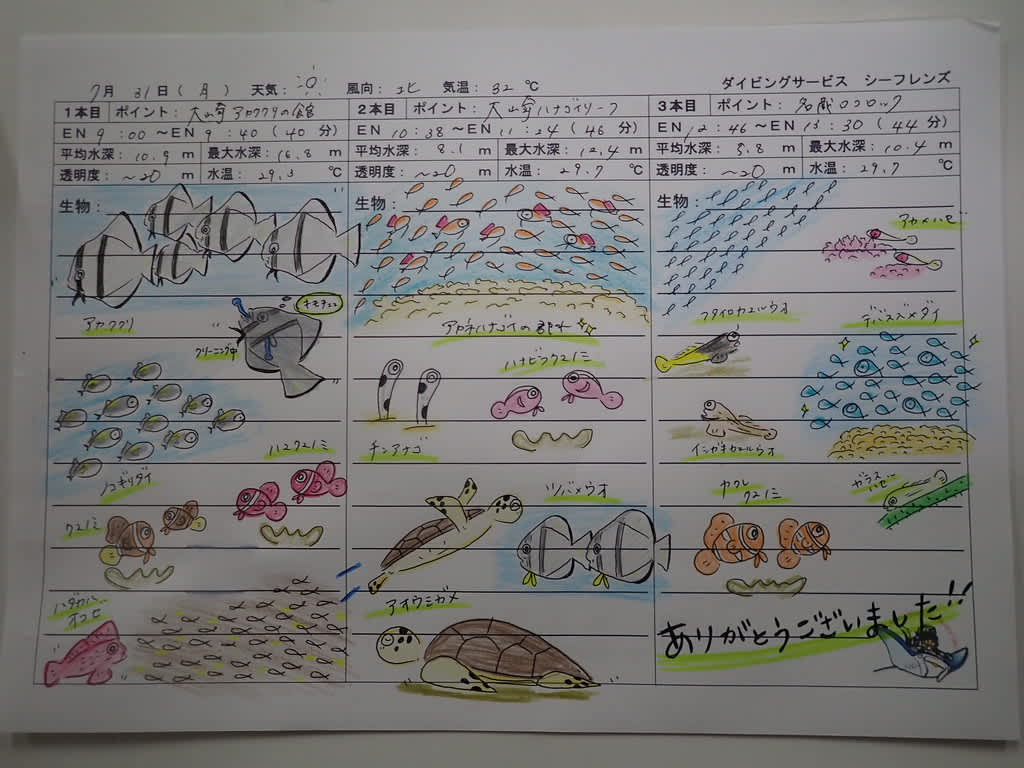 7月 31日 (月) 天気: 風向: 北 気温: 32 ℃ ダイビングサービス シーフレンズ
1本目 ポイント: 大山崎アカククリの館
EN 9:00〜EN 9:40 (40分)
平均水深: 10.9 m 最大水深: 16.8 m
透明度: 〜20 m 水温: 29.3 ℃
生物:
キモチェェ
アカククリ
クリーニング中
ノコギリダイ
ハマクマノミ
クマノミ
ハダカハオコゼ
2本目 ポイント: 大山崎ハナゴイリーフ
EN 10:38〜EN 11:24 (46分)
平均水深: 8.1 m 最大水深: 12.4 m
透明度: 〜20 m 水温: 29.7 ℃
生物:
ハナビラクマノミ
チンアナゴ
ツバメウオ
アオウミガメ
3本目 ポイント: 名蔵ロロロック
EN 12:46〜EN 13:30 (44分)
平均水深: 5.8 m 最大水深: 10.4 m
透明度: 〜20 m 水温: 29.7 ℃
生物:
アカメハゼ
フタイロカエルウオ
デバスズメダイ
イシガキカエルウオ
カクレ
クマノミ
ガラス
ハゼ
ありがとうございました!!